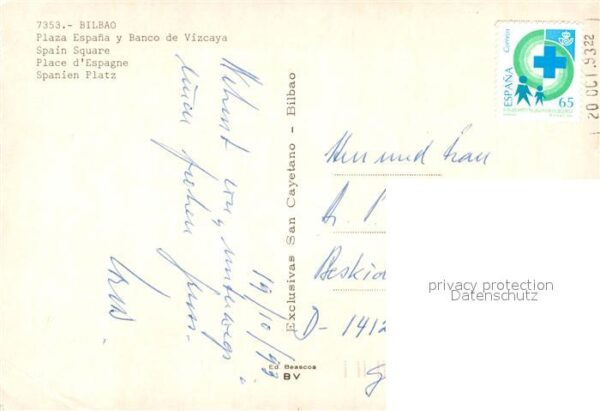 7353.- BILBAO
Plaza España y Banco de Vizcaya
Spain Square
Place d'Espagne
Spanien Platz
Correos
ESPAÑA
65
20 OCT. 93 22
unterwegs
einen frohen Gruss.
19/10/93
Exclusivas San Cayetano - Bilbao
Ed. Beascoa
BV
Herrn und Frau
D- 1412
privacy protection
Datenschutz